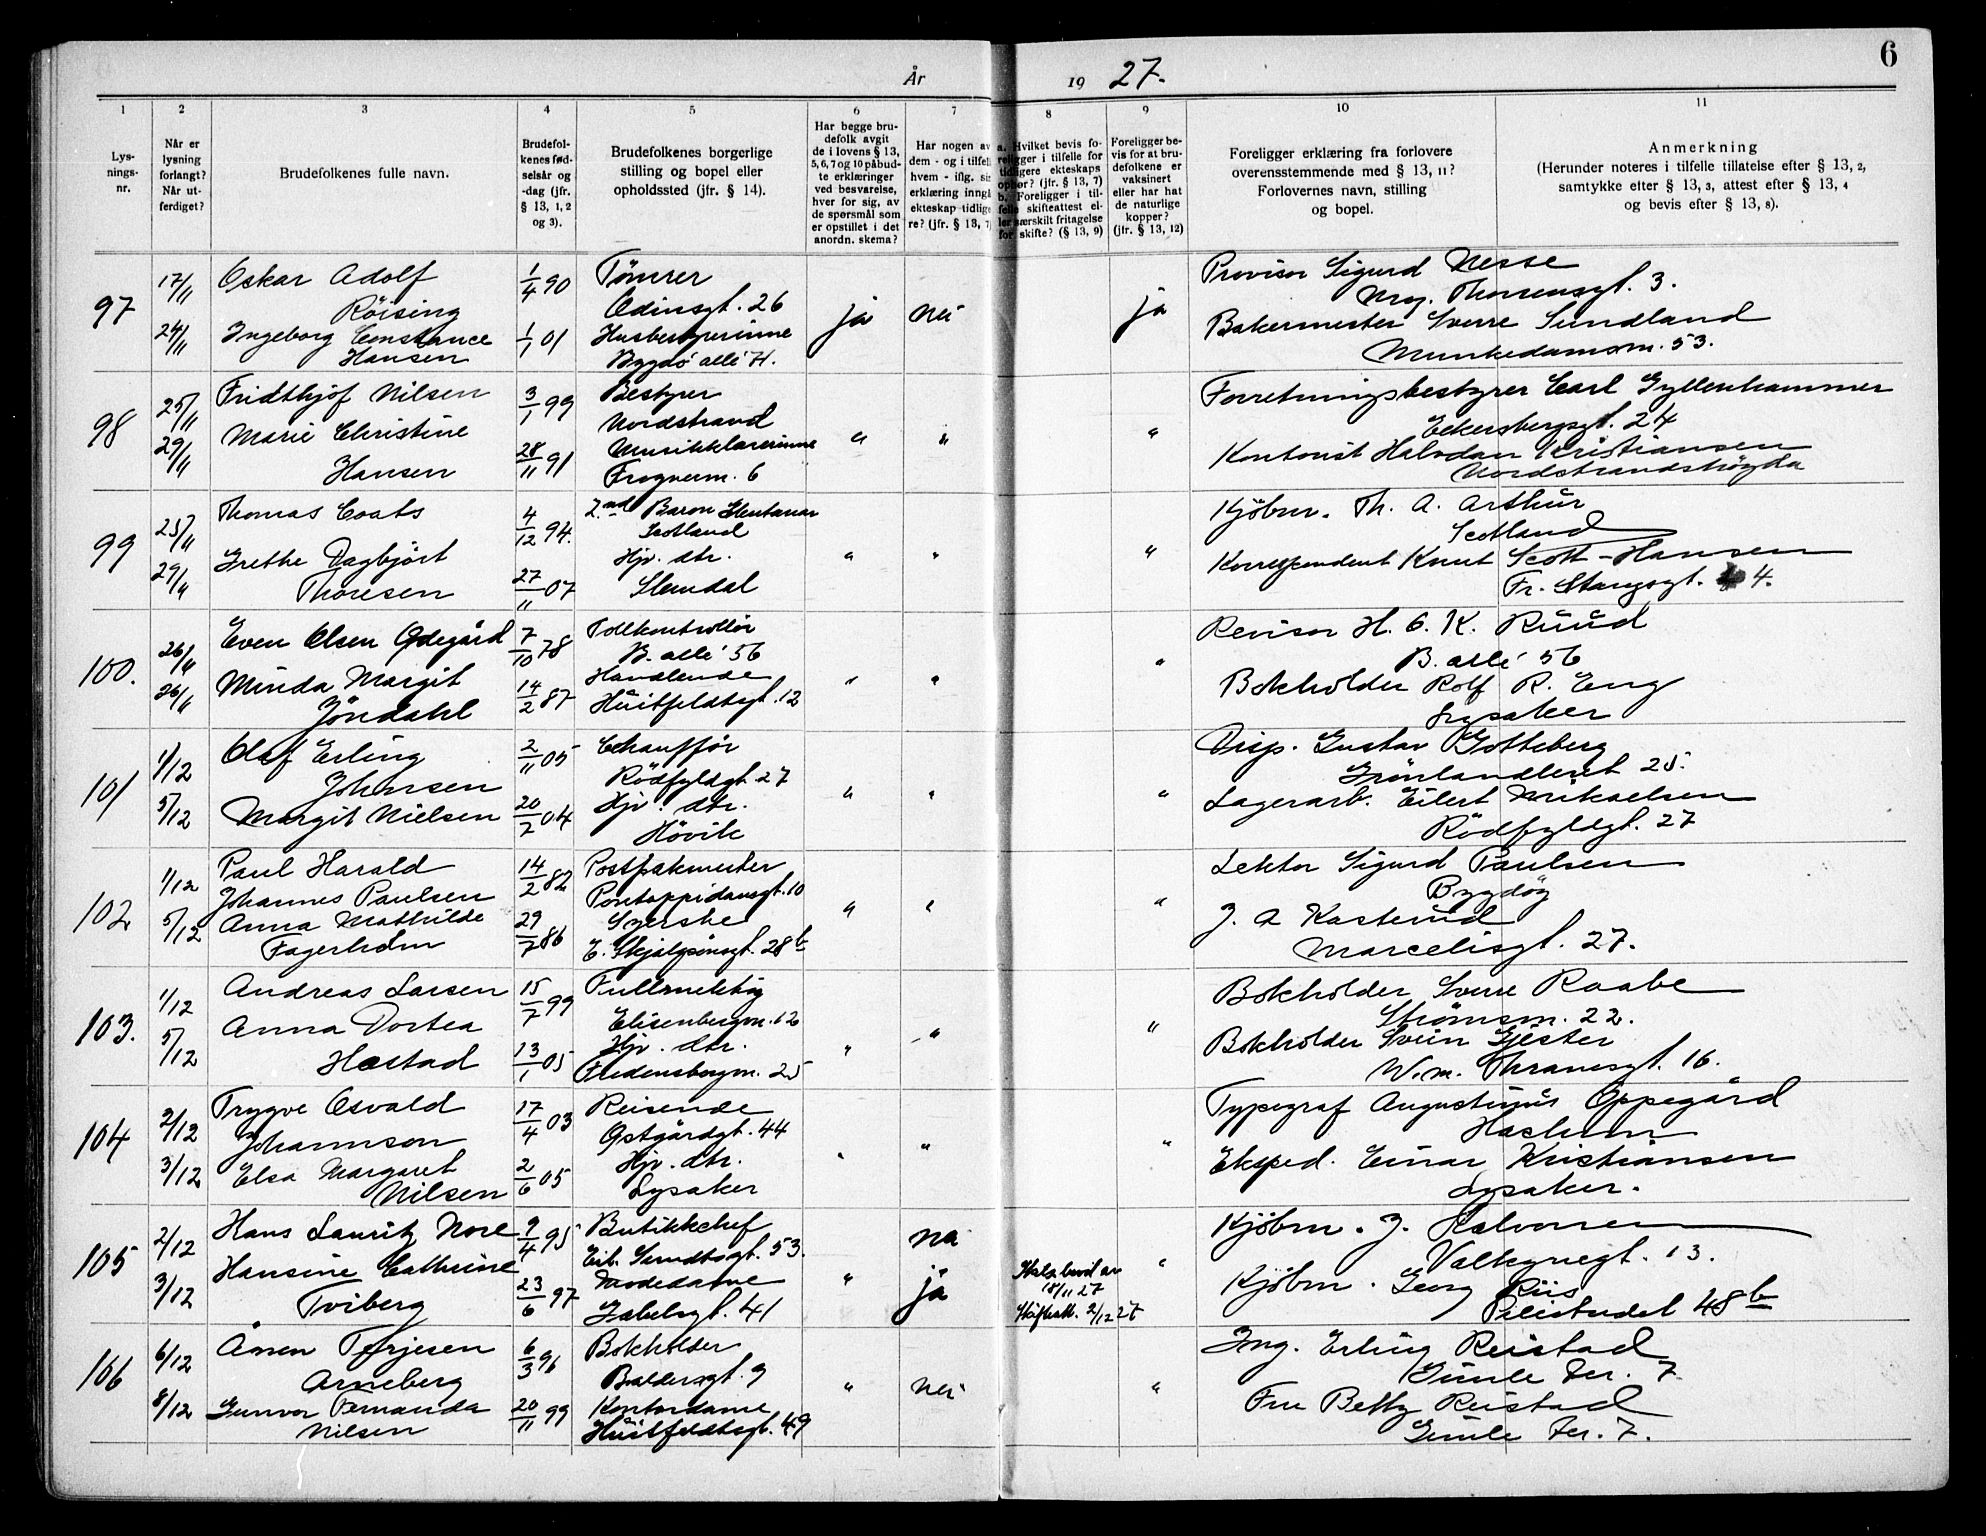 6
År 1927.
1 2 3 4 5 6 7 8 9 10 11
Lys-
nings-
nr.
Når er
lysning
forlangt?
Når ut-
ferdiget?
Brudefolkenes fulle navn.
Brudefol-
kenes fød-
selsår og
-dag (jfr.
§ 13, 1, 2
og 3).
Brudefolkenes borgerlige
stilling og bopel eller
opholdssted (jfr. § 14).
Har begge bru-
defolk avgit
de i lovens § 13,
5, 6, 7 og 10 påbud-
te erklæringer
ved besvarelse,
hver for sig, av
de spørsmål som
er opstillet i det
anordn. skema?
Har nogen av
dem - og i tilfelle
hvem - iflg. si
erklæring inngå
ekteskap tidlige
re? (jfr. § 13, 7
a. Hvilket bevis fo-
religger i tilfelle for
tidligere ekteskaps
ophør? (jfr. § 13, 7)
b. Foreligger i til-
felle skifteattest el-
ler særskilt fritagelse
for skifte? (§ 13, 9)
Foreligger be-
vis for at bru-
defolkene er
vaksinert
eller har hat
de naturlige
kopper?
(jfr. § 13, 12)
Foreligger erklæring fra forlovere
overensstemmende med § 13, 11?
Forlovernes navn, stilling
og bopel.
Anmerkning
(Herunder noteres i tilfelle tillatelse efter § 13, 2,
samtykke efter § 13, 3, attest efter § 13, 4
og bevis efter § 13, 8).
97 17/11 Oskar Adolf 1/4 90 Tömrer ja nei ja Provisor Sigurd Nesse
Röising Odinsgt. 26 Thoresensgt. 3.
24/11 Ingeborg Constance 1/1 01 Husbestyrerinne Bakermester Sverre Sundland
Hansen Bygdö allé Munkedamsvn. 53.
98 25/11 Fridthjof Nilsen 3/1 99 Bestyrer " " " Forretningsbestyrer Carl Gyllenhammer
Nordstrand Eckersbergsgt. 24
29/11 Marie Christine 28/11 91 Musikklærerinne Kontorist Halvdan Kristiansen
Hansen Frognervn. 6 Nordstrandshögda
99 25/11 Thomas Coats 4/12 94. 2.nd Baron Glentanar " " " Kjöbm. Th. A. Arthur
Scotland Scotland
29/11 Grethe Dagbjört 27/11 07 Hjv. dtr. Korrespondent Knut Scott-Hansen
Thoresen Slemdal Fr. Stangsgt. 4.
100. 26/11 Even Olsen Ödegård 7/10 78 Tollkontrollör " " " Revisor H. C. K. Ruud
B. allé 56 B. allé 56
26/11 Minda Margit 14/2 87 Handlende Bokholder Rolf R. Eng
Jöndahl Huitfeldtsgt. 12 Lysaker
101 1/12 Olaf Erling 2/11 05 Chaufför " " " Disp. Gustav Gotteberg
Johnsen Rödfyldgt. 27 Grönlandleiret 25.
5/12 Margit Nielsen 20/7 04 Hjv. dtr. Lagerarb. Eilert Mikaelsen
Hövik Rödfyldgt. 27
102 1/12 Paul Harald 14/2 82 Postpakmester " " " Lektor Sigurd Paulsen
Johannes Paulsen Pontoppidansgt. 10 Bygdöy
5/12 Anna Mathilde 29/7 86 Syerske J. A Kasterud
Fagerholm E. Skjalgsönsgt. 28 b Marcelisgt. 27.
103. 1/12 Andreas Larsen 15/7 99 Fullmektig " " " Bokholder Sverre Raabe
Elisenbergvn. 12 Strömsvn. 22.
5/12 Anna Dortea 13/1 05 Hjv. dtr. Bokholder Svein Gjester
Hæstad Fredensborgvn. 25 W.m. Thranesgt. 16.
104 2/12 Trygve Osvald 17/4 03 Reisende " " " Typegraf Augustinus Oppegård
Johannson Östgårdgt. 44 Haslum
3/12 Elsa Margaret 2/6 05 Hjv. dtr. Eksped. Einar Kristiansen
Nilsen Lysaker Lysaker.
105 2/12 Hans Lauritz Nore 9/4 95 Butikkchef " nei " Kjöbm. J. Halvorsen
Eil. Sundtsgt. 53. Valkyriegt. 13.
3/12 Hansine Cathrine 23/6 97 Modedame ja Kjöbm. Georg Riis
Tviberg Gabelsgt. 41 18/11 27 Pilestredet 48 b
Skifteatt. 2/12 27
106 6/12 Ånen Terjesen 6/3 96 Bokholder " nei " Ing. Erling Reistad
Arneberg Baldersgt. 9 Gimle ter. 7
8/12 Gunvor Fernanda 20/11 99 Kontordame Fru Betty Reistad
Nilsen Huitfeldtsgt. 49 Gimle ter. 7.